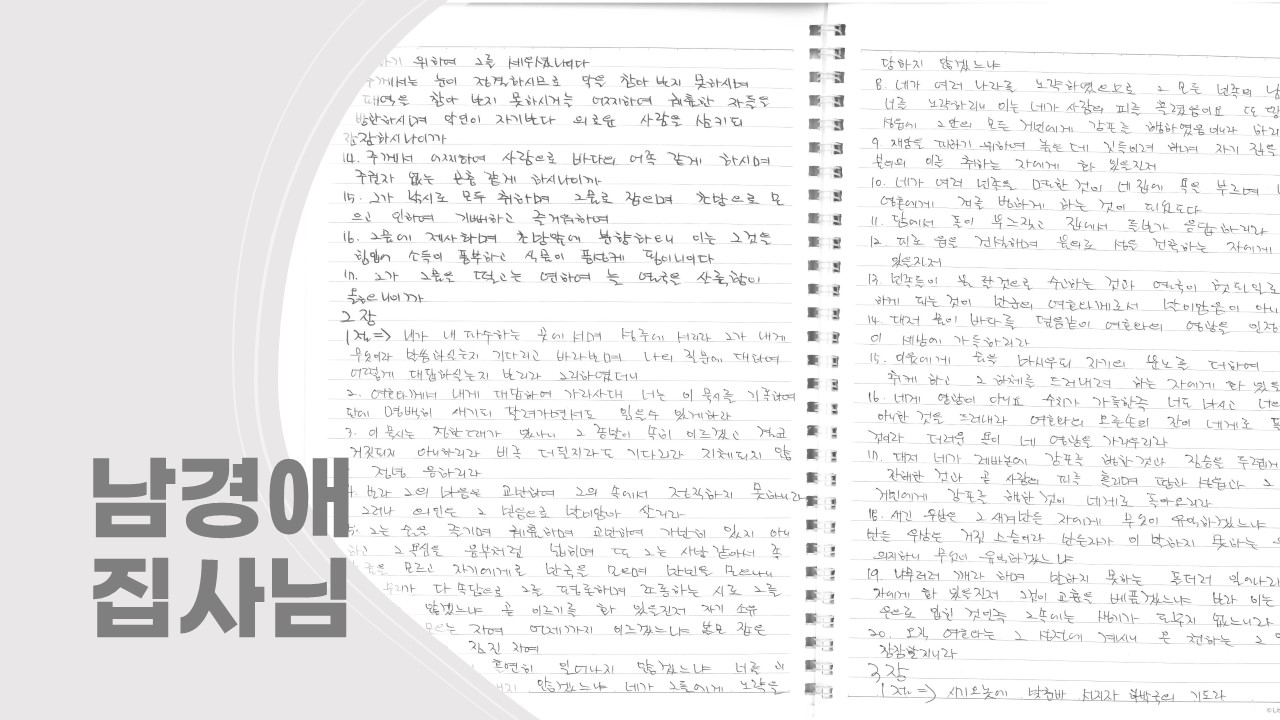 남경애
집사님
하기 위하여 그를 세우셨나이다
주께서는 눈이 정결하시므로 악을 참아 보지 못하시며
패역을 참아 보지 못하시거늘 어찌하여 궤휼한 자들을
방관하시며 악인이 자기보다 의로운 사람을 삼키되
잠잠하시나이까
14. 주께서 어찌하여 사람으로 바다의 어족 같게 하시며
주권자 없는 곤충 같게 하시나이까
15. 그가 낚시로 모두 취하며 그물로 잡으며 초망으로 모
으고 인하여 기뻐하고 즐거워하여
16. 그물에 제사하며 초망앞에 분향하오니 이는 그것을
힘입어 소득이 풍부하고 식물이 풍성케 됨이니이다
17. 그가 그물을 떨고는 연하여 늘 열국을 살륙함이
옳으니이까
2장
1절=> 내가 내 파수하는 곳에 서며 성루에 서리라 그가 내게
무엇이라 말씀하실는지 기다리고 바라보며 나의 질문에 대하여
어떻게 대답하실는지 보리라 그리하였더니
2. 여호와께서 내게 대답하여 가라사대 너는 이 묵시를 기록하여
판에 명백히 새기되 달려가면서도 읽을수 있게하라
3. 이 묵시는 정한때가 있나니 그 종말이 속히 이르겠고 결코
거짓되지 아니하리라 비록 더딜지라도 기다리라 지체되지 않
정녕 응하리라
보라 그의 마음은 교만하며 그의 속에서 정직하지 못하니라
그러나 의인은 그 믿음으로 말미암아 살리라
5. 그는 술을 즐기며 궤휼하며 교만하여 가만히 있지 아니
하고 그 욕심을 음부처럼 넓히며 또 그는 사망 같아서 족
을 모르고 자기에게로 만국을 모으며 만민을 모으나니
무리가 다 속담으로 그를 평론하며 조롱하는 시로 그를
않겠느냐 곧 이르기를 화 있을진저 자기 소유
모으는 자여 언제까지 이르겠느냐 볼모 잡은
짐진 자여
홀연히 일어나지 않겠느냐 너를
않겠느냐 네가 그들에게 노략을
당하지 않겠느냐
8. 네가 여러 나라를 노략하였으므로 그 모든 민족의
너를 노략하리니 이는 네가 사람의 피를 흘렸음이요 또
성읍에 그안의 모든 거민에게 강포를 행하였음이니라
9. 재앙을 피하기 위하여 높은 데 깃들이려 하며 자기 집을
불의의 이를 취하는 자에게 화 있을진저
10. 네가 여러 민족을 멸한 것이 네 집에 욕을 부르며
영혼에게 죄를 범하게 하는 것이 되었도다
11. 담에서 돌이 부르짖고 집에서 들보가 응답하리라
12. 피로 읍을 건설하며 불의로 성을 건축하는 자에게
있을진저
13. 민족들이 불 탈것으로 수고하는 것과 열국이 헛되이
하게 되는 것이 만군의 여호와께로서 말미암음이
14. 대저 물이 바다를 덮음같이 여호와의 영광을 인정
이 세상에 가득하리라
15. 이웃에게 술을 마시우되 자기의 분노를 더하여
취케 하고 그 하체를 드러내려 하는 자에게 화 있을
16. 네게 영광이 아니요 수치가 가득한즉 너도 마시고
아니한 것을 드러내라 여호와의 오른손의 잔이 네게로
것이라 더러운 욕이 네 영광을 가리우리라
17. 대저 네가 레바논에 강포를 행한것과 짐승을 두렵게
잔해한 것과 곧 사람의 피를 흘리며 땅과 성읍과 그
거민에게 강포를 행한 것이 네게로 돌아오리라
18. 새긴 우상은 그 새겨만든 자에게 무엇이 유익하겠느냐
만든 우상은 거짓 스승이라 만든자가 이 말하지 못하는
의지하니 무엇이 유익하겠느냐
19. 나무더러 깨라 하며 말하지 못하는 돌더러 일어나라
자에게 화 있을진저 그것이 교훈을 베풀겠느냐 보라 이는
은으로 입힌 것인즉 그속에는 생기가 도무지 없느니라
20. 오직 여호와는 그 성전에 계시니 온 천하는 그
잠잠할지니라
3장
1절=> 시기오놋에 맞춘바 선지자 하박국의 기도라